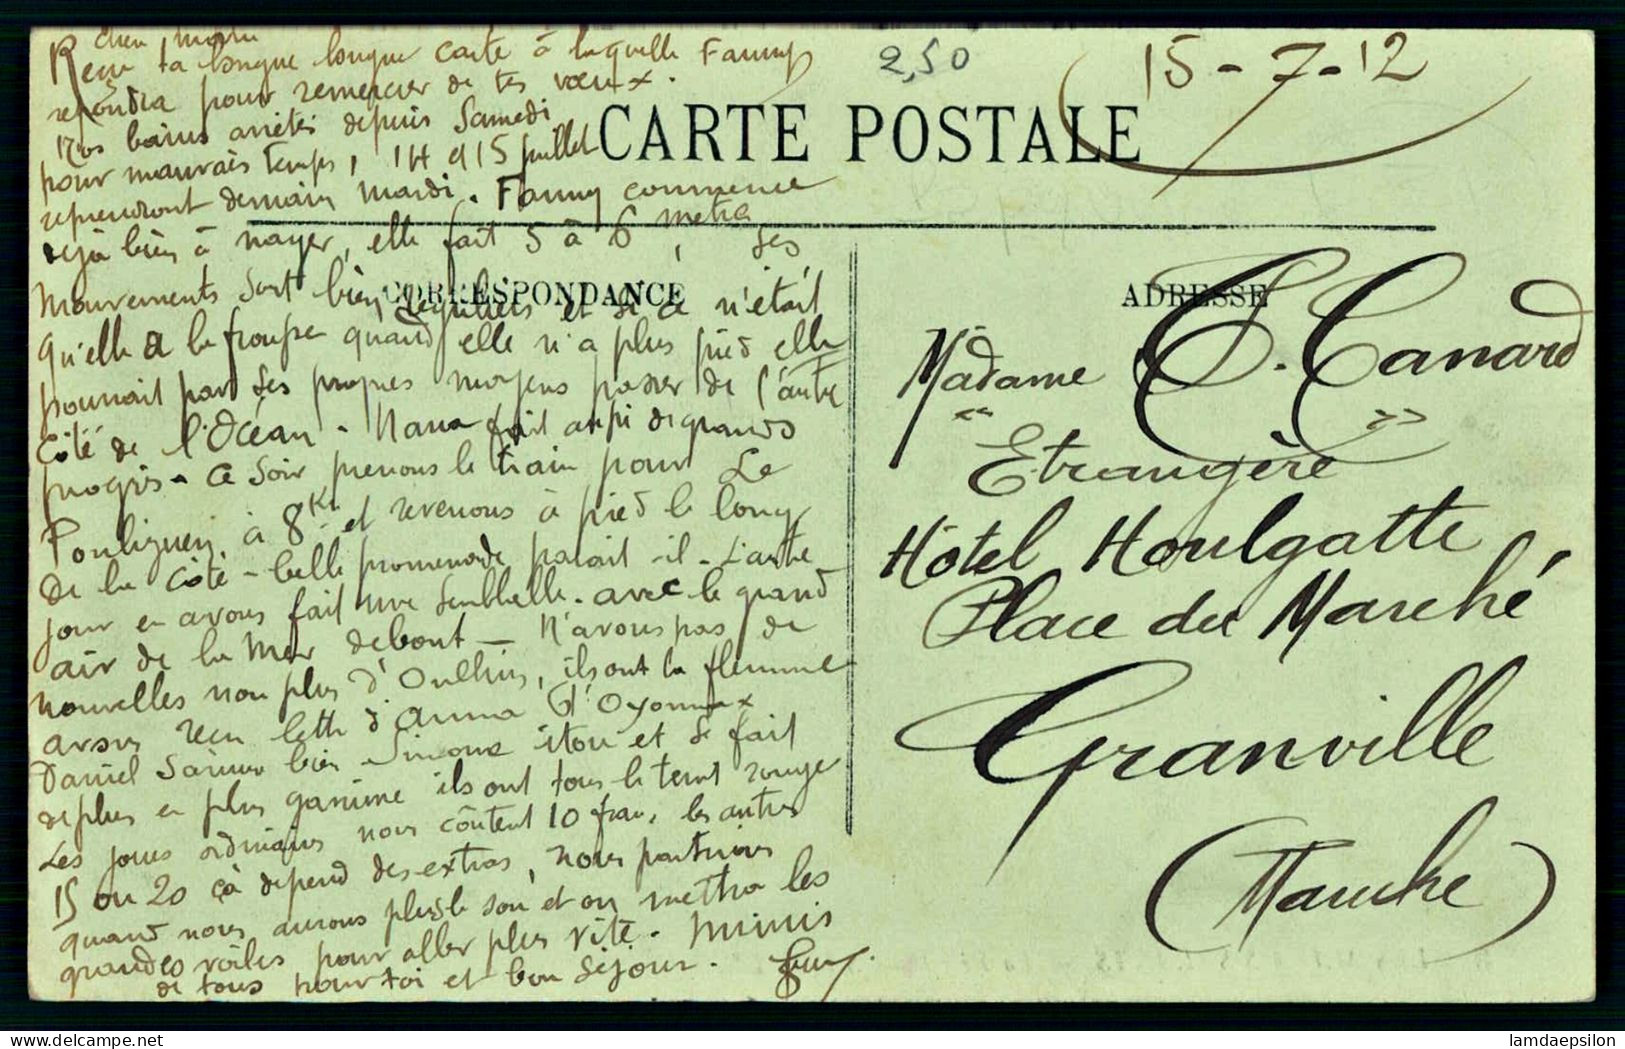 Reçu ta longue longue carte à laquelle Fanny
repondra pour remercier de tes vœux.
Nos bains arrêtés depuis Samedi
pour mauvais temps, 14 et 15 juillet
reprendront demain mardi. Fanny commence
dejà bien à nager, elle fait 5 à 6 metre, Ses
mouvements sont bien réguliers et si ce n'était
qu'elle a la frousse quand elle n'a plus pied elle
pourrait par ses propres moyens passer de l'autre
côté de l'Océan. Nana fait aussi de grands
progrès. Ce soir prenons le train pour Le
Pouliguen, à 8 Kt et revenons à pied le long
de la côte - belle promenade parait-il. L'autre
jour en avons fait une semblable. avec le grand
air de la mer debout — N'avons pas de
nouvelles non plus d'Oullins, ils ont la flemme
avons reçu lettre d'Anna d'Oyonnax
Daniel bien Simone itou et se fait
de plus en plus gamine ils ont tous le teint rouge
Les jours ordinaires nous coûtent 10 fran, les autres
15 ou 20 çà depend des extras, nous partirons
quand nous aurons plus le sou et on mettra les
grandes voiles pour aller plus vite. Mimis
de tous pour toi et bon séjour.
2,50
15-7-12
CARTE POSTALE
CORRESPONDANCE
ADRESSE
Madame S. Canard
"Etrangère"
Hôtel Houlgatte
Place du Marché
Granville
(Manche)
lamdaepsilon